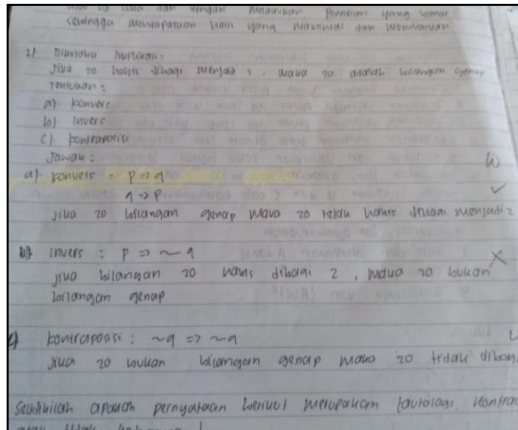 sehingga mendapatkan hasil yang maksimal dan
2) Diketahui
Jika 20 habis dibagi menjadi 2, maka 20 adalah bilangan genap
Tentukan :
a) konvers
b) invers
c) kontraposisi
Jawab :
a) konvers = p => q
q => p
Jika 20 bilangan genap maka 20 habis menjadi 2
b) invers : p => ~q
Jika bilangan 20 habis dibagi 2, maka 20 bukan
bilangan genap
c) kontraposisi : ~q => ~q
Jika 20 bukan bilangan genap maka 20 tidak
apakah pernyataan berikut merupakan tautologi,